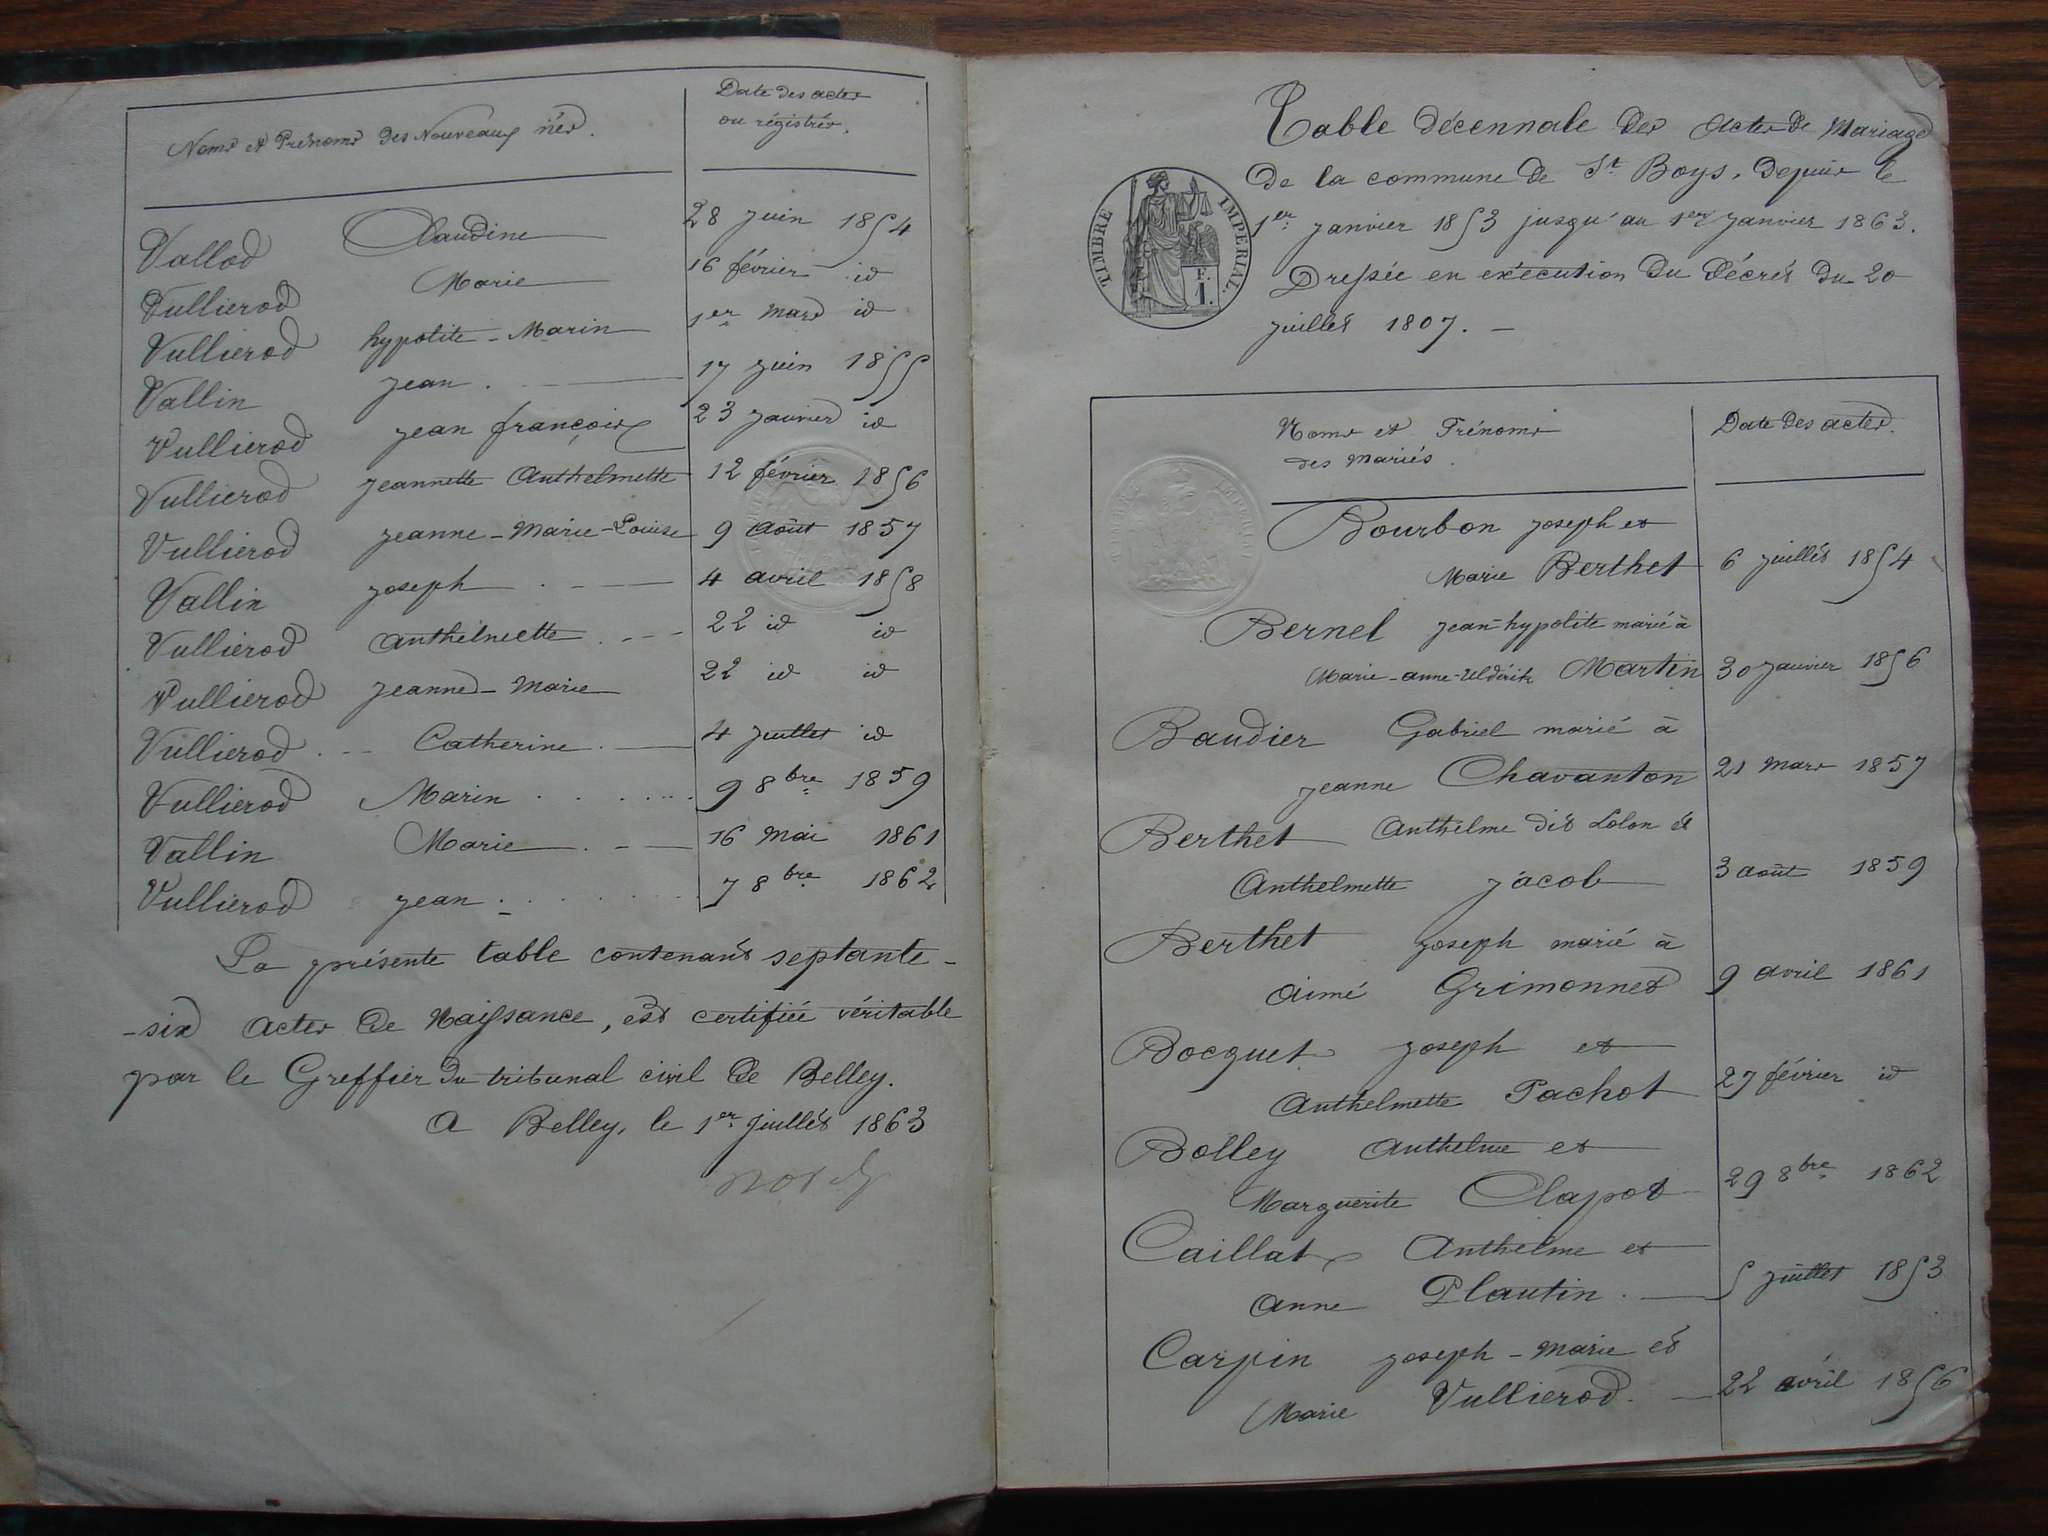 Noms et Prénoms des Nouveaux nés.
Date des actes
ou régistrés.
Vallod Claudine 28 juin 1854
Vullierod Marie 16 février id
Vullierod hypolite-Marin 1er mars id
Vallin jean. 17 juin 1855
Vullierod jean françois 23 janvier id
Vullierod jeannette Anthelmette 12 février 1856
Vullierod jeanne-Marie-Louise 9 août 1857
Vallin joseph 4 avril 1858
Vullierod anthelmette 22 id id
Vullierod jeanne-Marie 22 id id
Vullierod Catherine 4 juillet id
Vullierod Marin 9 8bre 1859
Vallin Marie 16 mai 1861
Vullierod jean 7 8bre 1862
La présente table contenant septante-
-six actes de Naissance, est certifiée véritable
par le Greffier du tribunal civil de Belley.
A Belley, le 1er juillet 1863
Table décennale des actes de Mariage
de la commune de St Boys, depuis le
1er janvier 1853 jusqu'au 1er janvier 1863.
Dressée en exécution du Décret du 20
juillet 1807.
TIMBRE IMPERIAL
F.
1.
Noms et Prénoms
des mariés.
Date des actes.
Bourbon joseph et
Marie Berthet 6 juillet 1854
Bernel jean-hypolite marié à
Marie-anne- Martin 30 janvier 1856
Baudier Gabriel marié à
jeanne Chavanton 21 mars 1857
Berthet Anthelme dit Lolon et
Anthelmette jacob 3 août 1859
Berthet joseph marié à
aimé Grimonnet 9 avril 1861
Bocquet joseph et
Anthelmette Pachot 27 février id
Bolley Anthelme et
Marguerite Clapot 29 8bre 1862
Caillat Anthelme et
anne Plantin. 5 juillet 1853
Carpin joseph-marie et
Marie Vullierod. 22 avril 1856